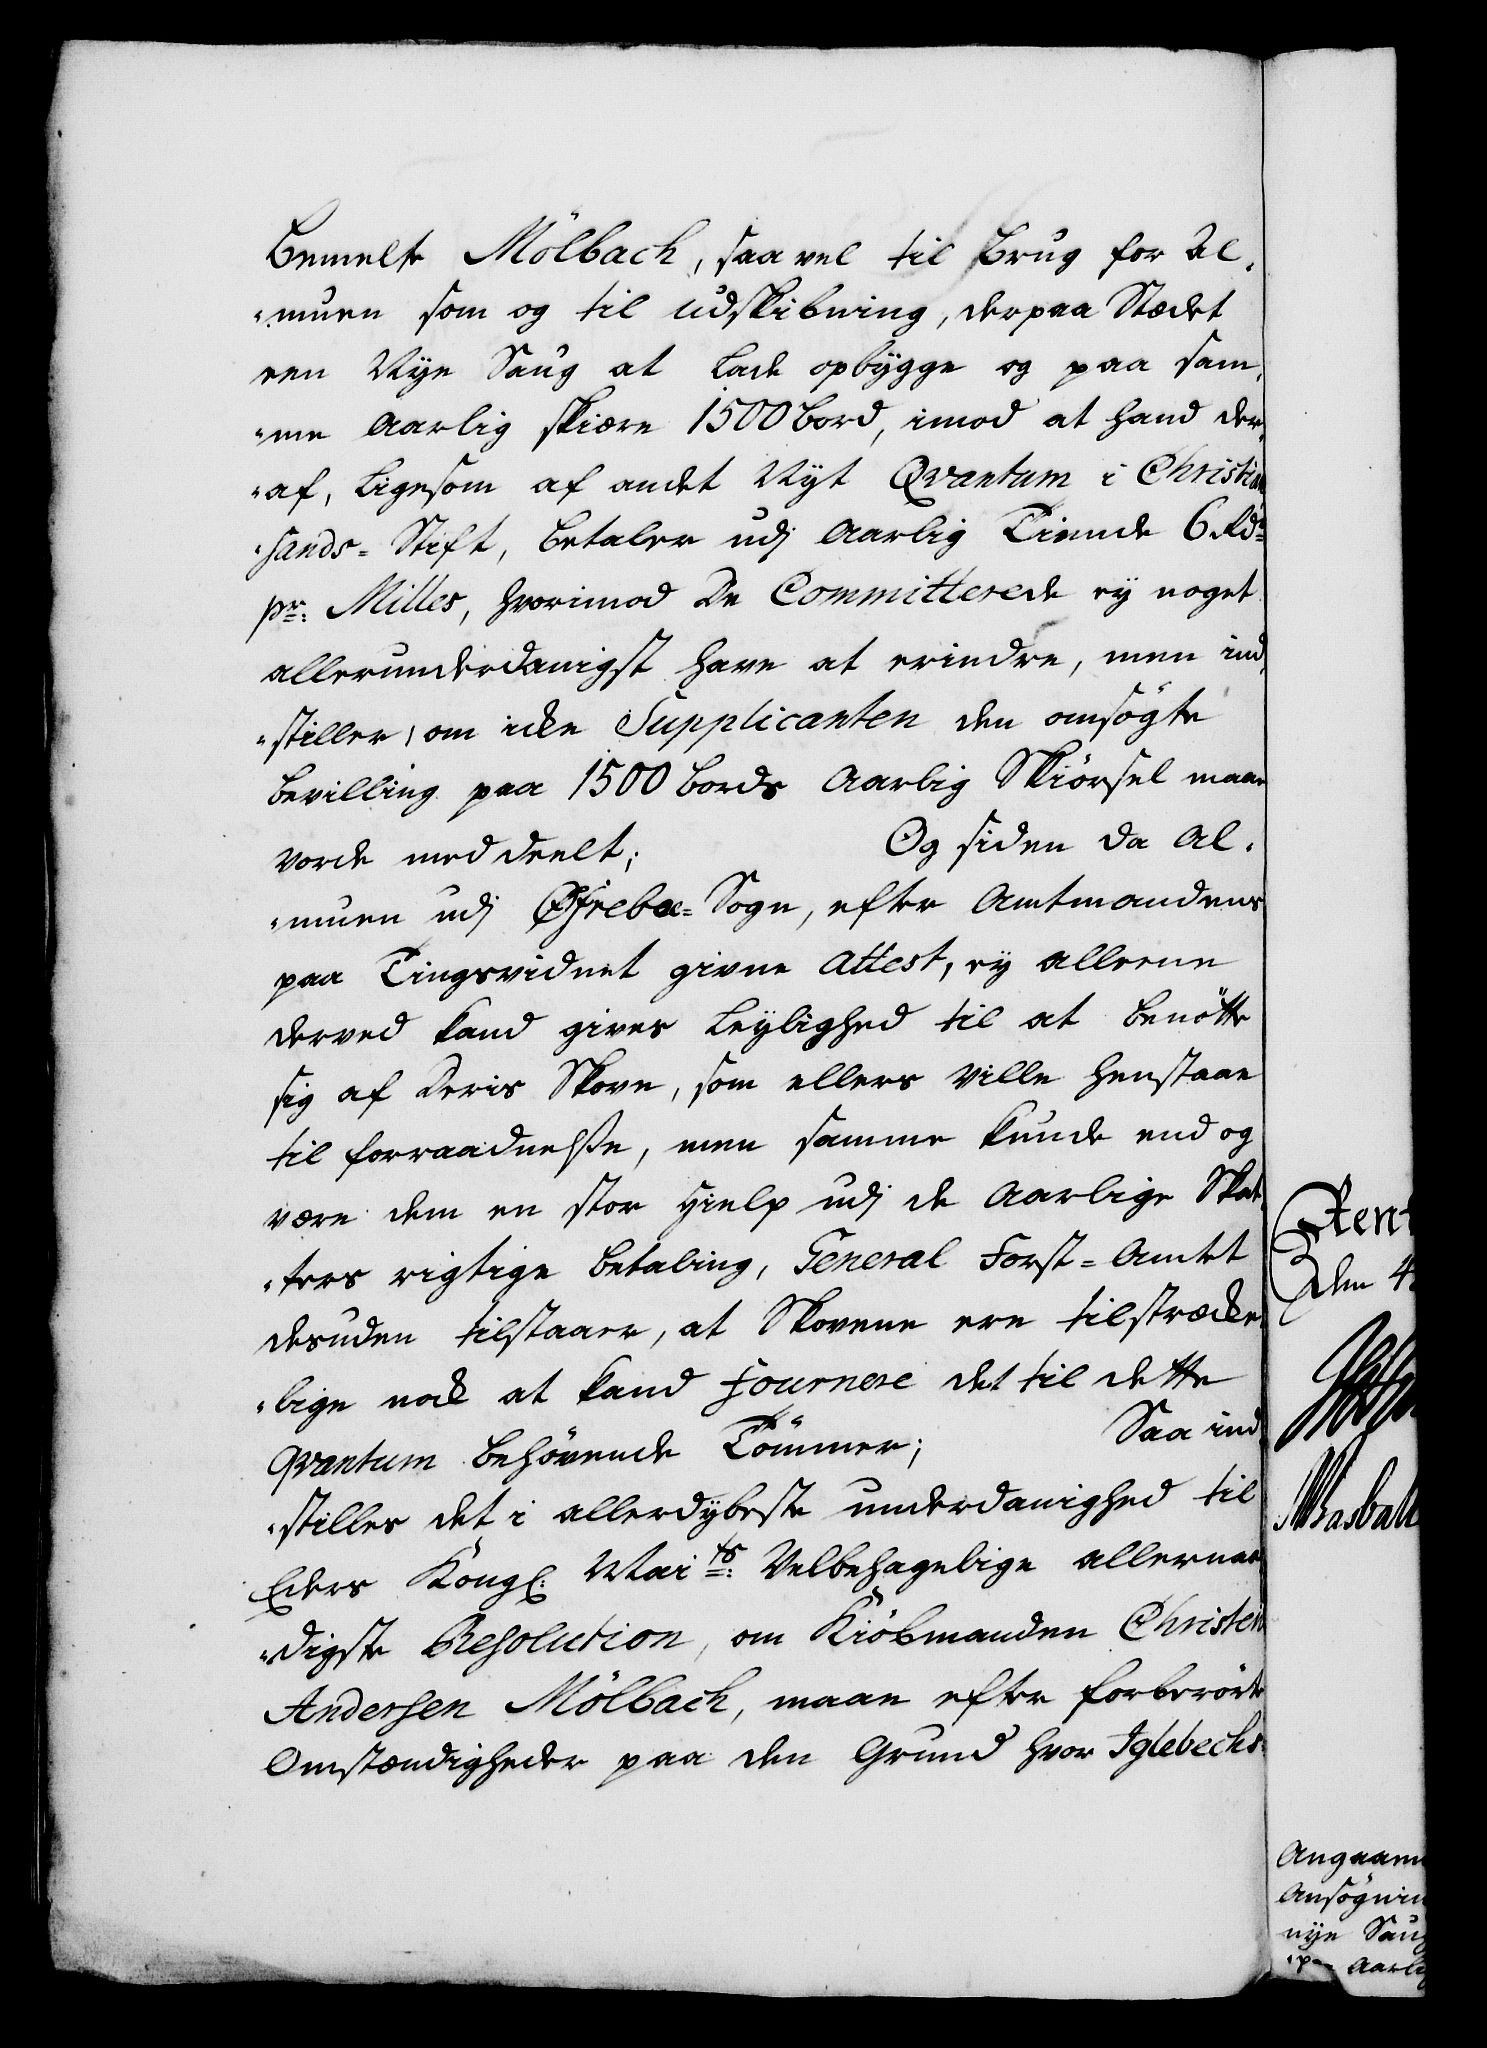 bemelte Mölbach, saa vel til Brug for Al,
"muen som og til udskibning, derpaa Stædet
een Nye Saug at lade opbygge og paa sam,
"me Aarlig skiære 1500 bord, imod at hand der,
"af, ligesom af andet Nyt Qvantum i Christian
"sands= Stift, betaler udj Aarlig Tiende 6 Rdr
pr: Milles, hvorimod De Committerede ey noget
allerunderdanigst have at erindre, men ind,
"stiller, om icke Supplicanten den omsögte
bevilling paa 1500 bords Aarlig Skiörsel maae
vorde meddeelt; Og siden da Al,
"muen udj Øfrebøe= Sogn, efter Amtmandens
paa Tingsvidnet givne Attest, ey alleene
derved kand gives leylighed til at benötte
sig af deris Skove, som ellers ville henstaae
til forraadnelsse, men samme kunde end og
være dem en stor Hielp udj de Aarlige Skat,
"ters rigtige betaling, General Forst= Amtet
desuden tilstaaer, at Skovene ere tilstrække,
"lige nok at kand Fournere det til dette
Qvantum behövende Tömmer; Saa ind
"stilles det i allerdybeste underdanighed til
Eders Kongl: Mai ts: Velbehagelige allernaa
"digste Resolution, om Kiöbmanden Christen
Andersen Mölbach, maae efter forberörte
Omstændigheder paa den Grund hvor Iglebechs
Rent
den 4
Angaaen
Ansögnin
nye Saug
Aarlig